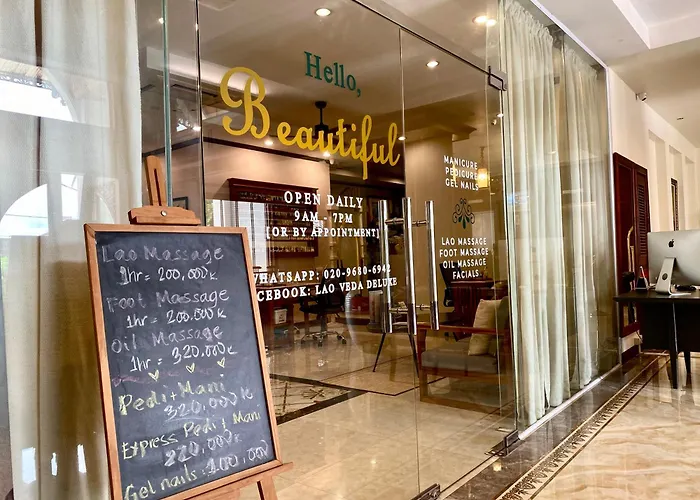 Hello,
Beautiful
OPEN DAILY
9AM - 7PM
(OR BY APPOINTMENT)
WHATSAPP: 020-9680-6942
FACEBOOK: LAO VEDA DELUXE
MANICURE
PEDICURE
GEL NAILS
LAO MASSAGE
FOOT MASSAGE
OIL MASSAGE
FACIALS
Lao Massage
1hr = 200,000k
Foot Massage
1hr = 200.000k
Oil Massage
1hr = 320,000k
Pedi + Mani
320,000k
Express Pedi & Mani
220,000k
Gel nails: 100,000